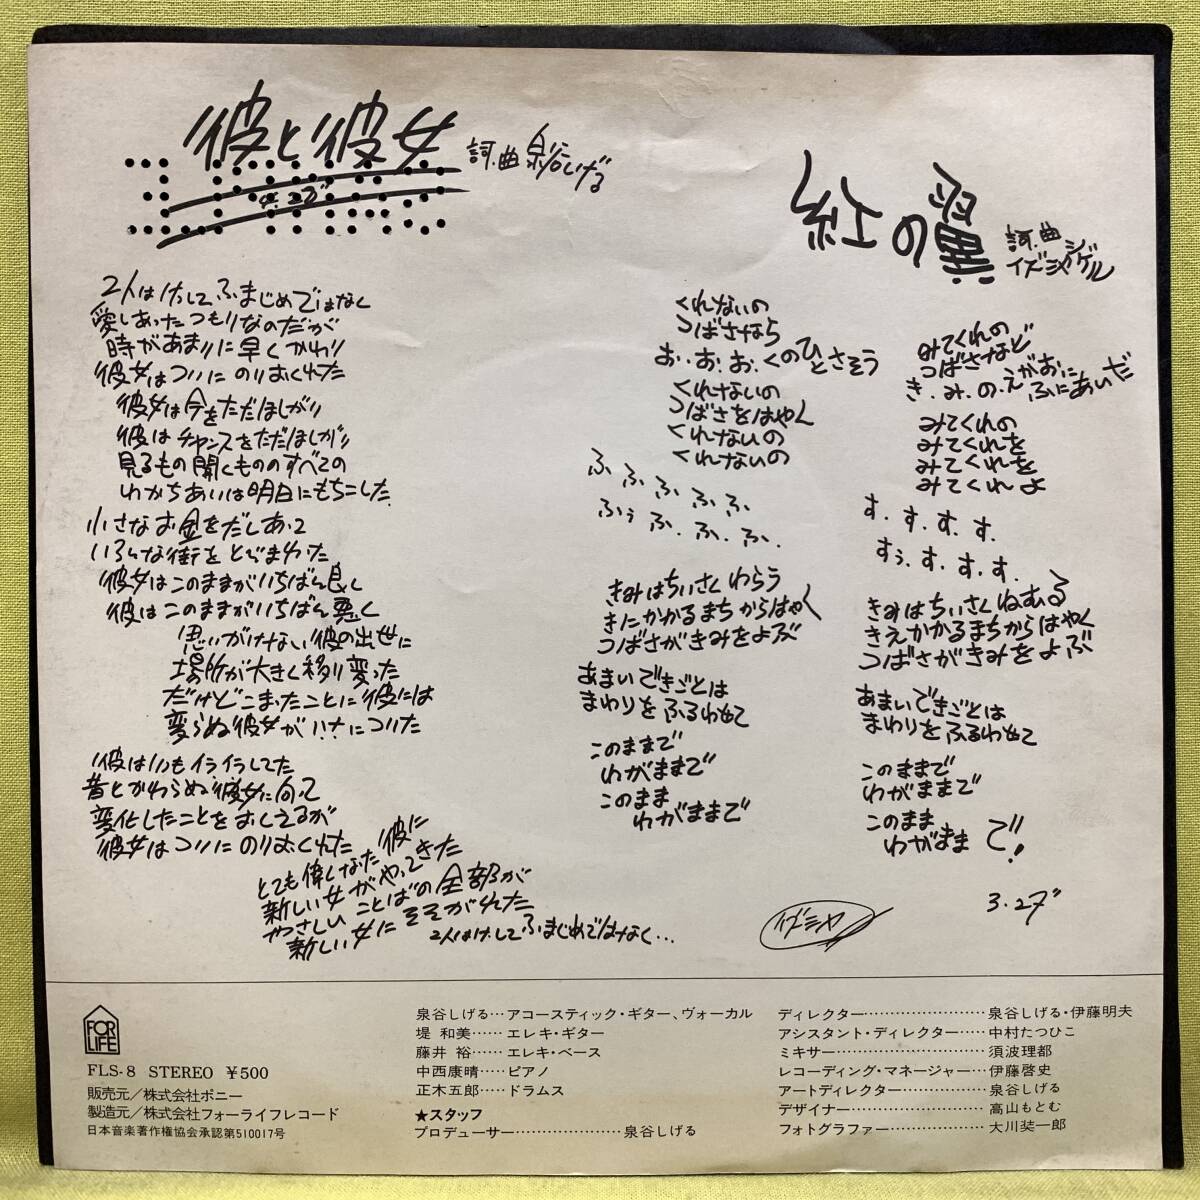 彼と彼女
詞.曲 泉谷しげる
2人はけしてふまじめではなく
愛しあったつもりなのだが
時があまりに早くかわり
彼女はついにのりおくれた
彼女は今をただほしがり
彼はチャンスをただほしがり
見るもの聞くもののすべての
わかちあいは明日にもちこした
小さなお金をだしあって
いろんな街をとびまわった
彼女はこのままがいちばん良く
彼はこのままがいちばん悪く
思いがけない彼の出世に
場所が大きく移り変った
だけどこまったことに彼には
変らぬ彼女がハナについた
彼はいつもイライラしてた
昔とかわらぬ彼女に向って
変化したことをおしえるが
彼女はついにのりおくれた
とても偉くなった彼に
新しい女がやってきた
やさしいことばの全部が
新しい女にそそがれた
2人はけしてふまじめではなく…
紅の翼
詞.曲
イズミヤシゲル
くれないの
つばさなら
お・お・お・くのひとさそう
くれないの
つばさをはやく
くれないの
くれないの
ふ ふ ふ ふ ふ
ふぅ ふ. ふ. ふ.
きみはちいさく わらう
きにかかるまちからはやく
つばさがきみをよぶ
あまいできごとは
まわりをふるわせて
このままで
わがままで
このまま
わがままで
みてくれの
つばさなど
き.み.の.えがおにふにあいだ
みてくれの
みてくれを
みてくれを
みてくれよ
す.す.す.す.
すぅ.す.す.す.
きみはちいさくねむる
きえかかるまちからはやく
つばさがきみをよぶ
あまいできごとは
まわりをふるわせて
このままで
わがままで
このまま
わがままで!
イズミヤ
FOR
LIFE
FLS-8 STEREO ¥500
販売元/株式会社ポニー
製造元/株式会社フォーライフレコード
日本音楽著作権協会承認第510017号
泉谷しげる…アコースティック・ギター、ヴォーカル
堤 和美……エレキ・ギター
藤井 裕……エレキ・ベース
中西康晴……ピアノ
正木五郎……ドラムス
★スタッフ
プロデューサー…………………泉谷しげる
ディレクター……………………泉谷しげる・伊藤明夫
アシスタント・ディレクター……中村たつひこ
ミキサー…………………………須波理都
レコーディング・マネージャー…伊藤啓史
アートディレクター………………泉谷しげる
デザイナー………………………高山もとむ
フォトグラファー…………………大川奘一郎